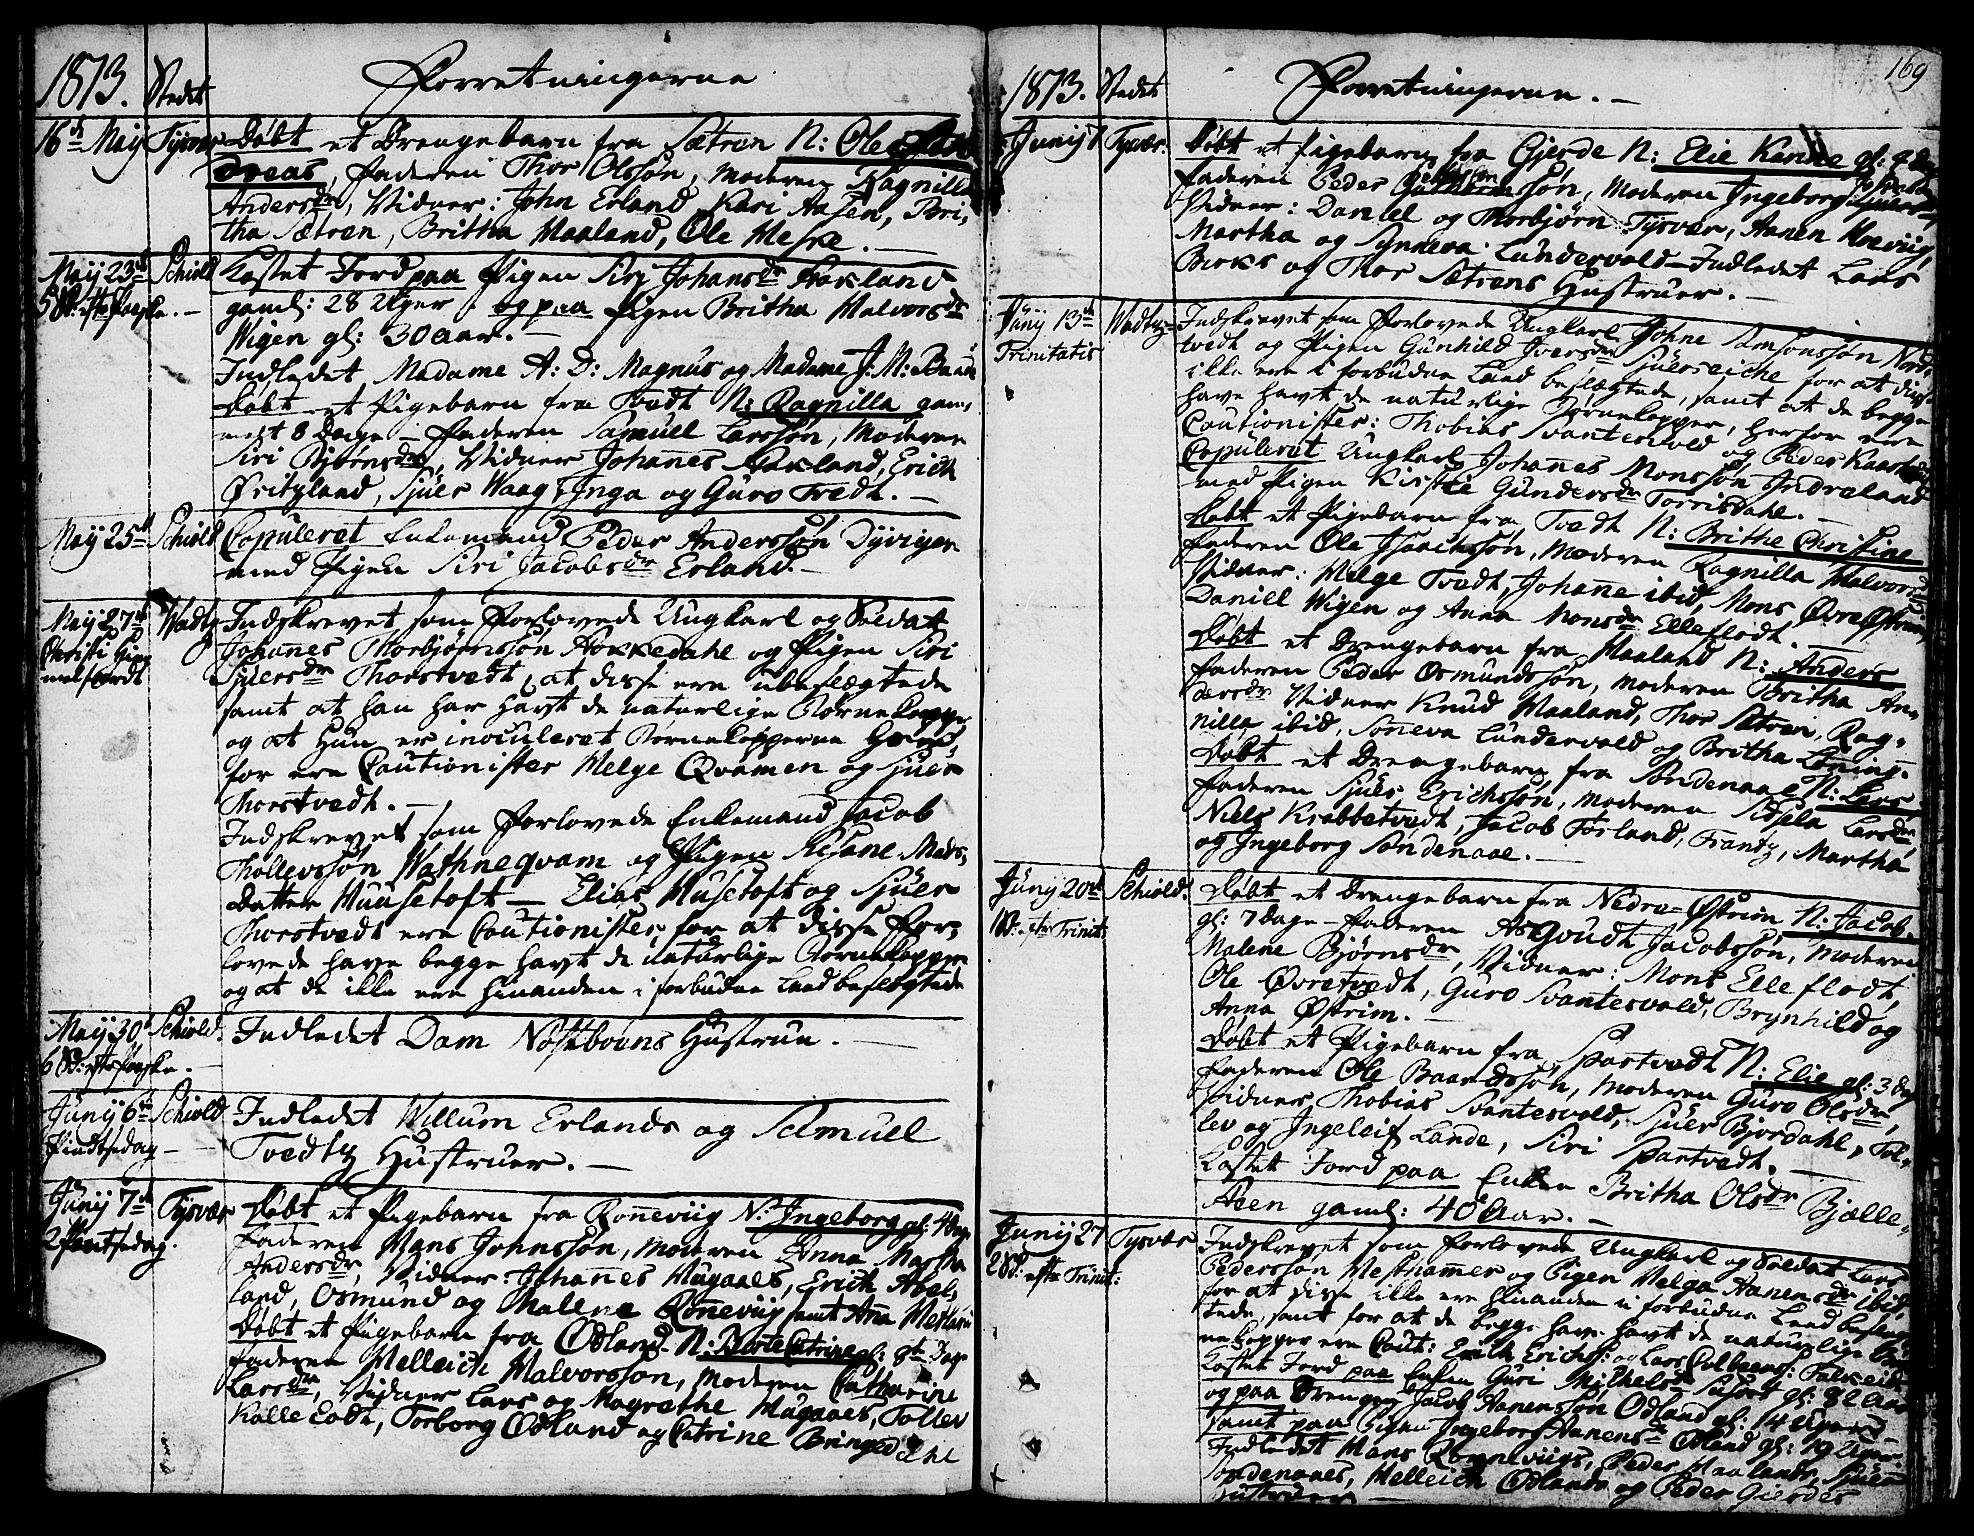 1813. Stedet Forretningerne
16de May Tysvær Døbt et Drengebarn fra Sætren N: Ole An-
dreas, Faderen Thor Olssøn, Moderen Ragnilla
Andersdr, Vidner: John Erland, Kari Aasen, Bri-
tha Sætren, Britha Maaland, Ole Meske. —
May 23de Schiold Kastet Jord paa Pigen Siri Johansdr Høkland
5 S: efter Paaske. — gaml: 28 Uger og paa Pigen Britha Halvorsdr
Wigen gl: 30 aar. —
Indledet Madame A: D: Magnus og Madame J. M: Baun
Døbt et Pigebarn fra Tvedt N: Ragnilla gam-
melt 8 Dage — Faderen Samuel Larssøn, Moderen
Siri Bjørnsdr, Vidner Johannes Høkland, Erich
Øritzland, Sjuer Waag, Inga og Guro Tvedt. —
May 25de Schiold Copuleret Enkemand Peder Anderssøn Dyvigen
med Pigen Siri Jacobsdr Erland. —
May 27de Wadtz Indskrevet som Forlovede Ungkarl og Soldat
Christi Him- Johannes Thorbjørnssøn Hokkedahl og Pigen Siri
melfardt Sjuersdr Thorstvedt, at disse ere ubeslægtede
samt at han har havt de naturlige Børnekopper
og at Hun er inoculeret Børnekopperne Her-
for ere Cautionister Helge Qvamen og Sjuer
Thorstvedt. —
Indskrevet som Forlovede Enkemand Jacob
Thollevssøn Wathneqvam og Pigen Susane Mads-
Datter Huusetoft — Elias Husetoft og Sjuer
Thorstvedt ere Cautionister for at disse For-
lovede have begge havt de naturlige Børnekopper
og at de ikke ere hinanden i forbudne Leed beslægtede
May 30te Schiold. Indledet Dam Nøstbøuns Hustrue. —
6 S: efter Paaske. —
Juny 6te Schiold Indledet Willum Erlands og Samuell
Pindtsedag — Tvedtz Hustruer. —
Juny 7de Tysvær Døbt et Pigebarn fra Rønneviig N: Ingeborg gl: 4 Dage
2 Pintsedag. Faderen Hans Johnssøn, Moderen Anna Martha
Andersdr, Vidner: Johannes Hugaaes, Erich Abel-
land, Osmund og Malene Rønneviig samt Anna
Døbt et Pigebarn fra Odland N: Berte Catrine gl: 8te Dage
Faderen Melleich Halvorssøn, Moderen Catharine
Larsdr, Vidner Lars og Magrethe Hugaaes, Tollev
Kalle Lodt, Torborg Odland og Catrine Bringedahl
169
1813. Stedet Forretningerne. —
Junij 7 Tysvær. Døbt et Pigebarn fra Gjerde N: Elie Karine gl: 4 Dage
Faderen Peder, Moderen Ingeborg
Vidner: Daniel og Thorbjørn Tysvær, Aanen Hoeviig,
Martha og Synneva Lundervold — Indledet Lars
Boks og Thor Sætrens Hustruer. —
Junij 13de Wadtz- Indskrevet som Forlovede Ungkarl Johne Simonssøn Nord-
Trinitatis tvedt og Pigen Gunhild Iversdr Sjuersviche for at disse
ikke ere i forbudne Leed beslægtede, samt at de begge
have havt de naturlige Børnekopper, herfor ere
Cautionister: Thobias Svantesvold og Peder
Copuleret Ungkarl Johannes Monssøn Indreland
med Pigen Kirstie Gundersdr Torrisdahl. —
Døbt et Pigebarn fra Tvedt N: Brithe Christine
Faderen Ole Isaachssøn, Moderen Ragnilla Halvorsdr
Vidner: Helge Tvedt, Johane ibid, Mons Øvre Østrim,
Daniel Wigen og Anna Monsdr Elleflodt. —
Døbt et Drengebarn fra Maaland N: Anders
Faderen Peder Osmundssøn, Moderen Britha An-
dersdr Vidner Knud Maaland, Thor Sætren, Rag-
nilla ibid, Søneva Lundervold og Britha Løning.
Døbt et Drengebarn fra Søndenaae N: Lars
Faderen Sjuer Erichssøn, Moderen Sissela Larsdr
Niels Krabbetvedt, Jacob Førland, Frantz, Martha
og Ingeborg Søndenaae. —
Juny 20de Schiold. Døbt et Drengebarn fra Nedre-Østrim N: Jacob
1 S: efter Trinit: gl: 7 Dage — Faderen Asgoudt Jacobssøn, Moderen
Malene Bjørnsdr, Vidner: Mons Elleflodt,
Ole Øvretvedt, Guro Svantesvold, Brynhild og
Anna Østrim. —
Døbt et Pigebarn fra Spartvedt N: Elie gl: 3 Dage
Faderen Ole Baardssøn, Moderen Guro Olsdr,
Vidner Thobias Svantesvold, Sjuer Bjordahl, Tol-
lev og Ingeleif Lande, Siri Spartvedt. —
Kastet Jord paa Enken Britha Olsdr Bjelle-
steen gaml: 40 Aar. —
Junij 27 Tysvær Indskrevet som Forlovede Ungkarl og Soldat Lars
2 S: efter Trinit: Pederssøn Vesthammer og Pigen Helga Aanensdr ibid,
for at disse ikke ere hinanden i forbudne Leed beslæg-
tede, samt for at de begge have havt de naturlige Bør-
nekopper ere Caut: Erich Erichs: og Lars
Kastet Jord paa Enken Guri Michelsdr gl: 82 Aar
og paa Drengen Jacob Aanenssøn Odland gl: 14 Uger
samt paa Pigen Ingeborg Aanensdr Odland gl: 19 Uger —
Indledet Hans Rønneviigs, Peder Maalands, Sjuer
Søndenaaes, Melleich Odlands og Peder Gjerdes
Hustruer —